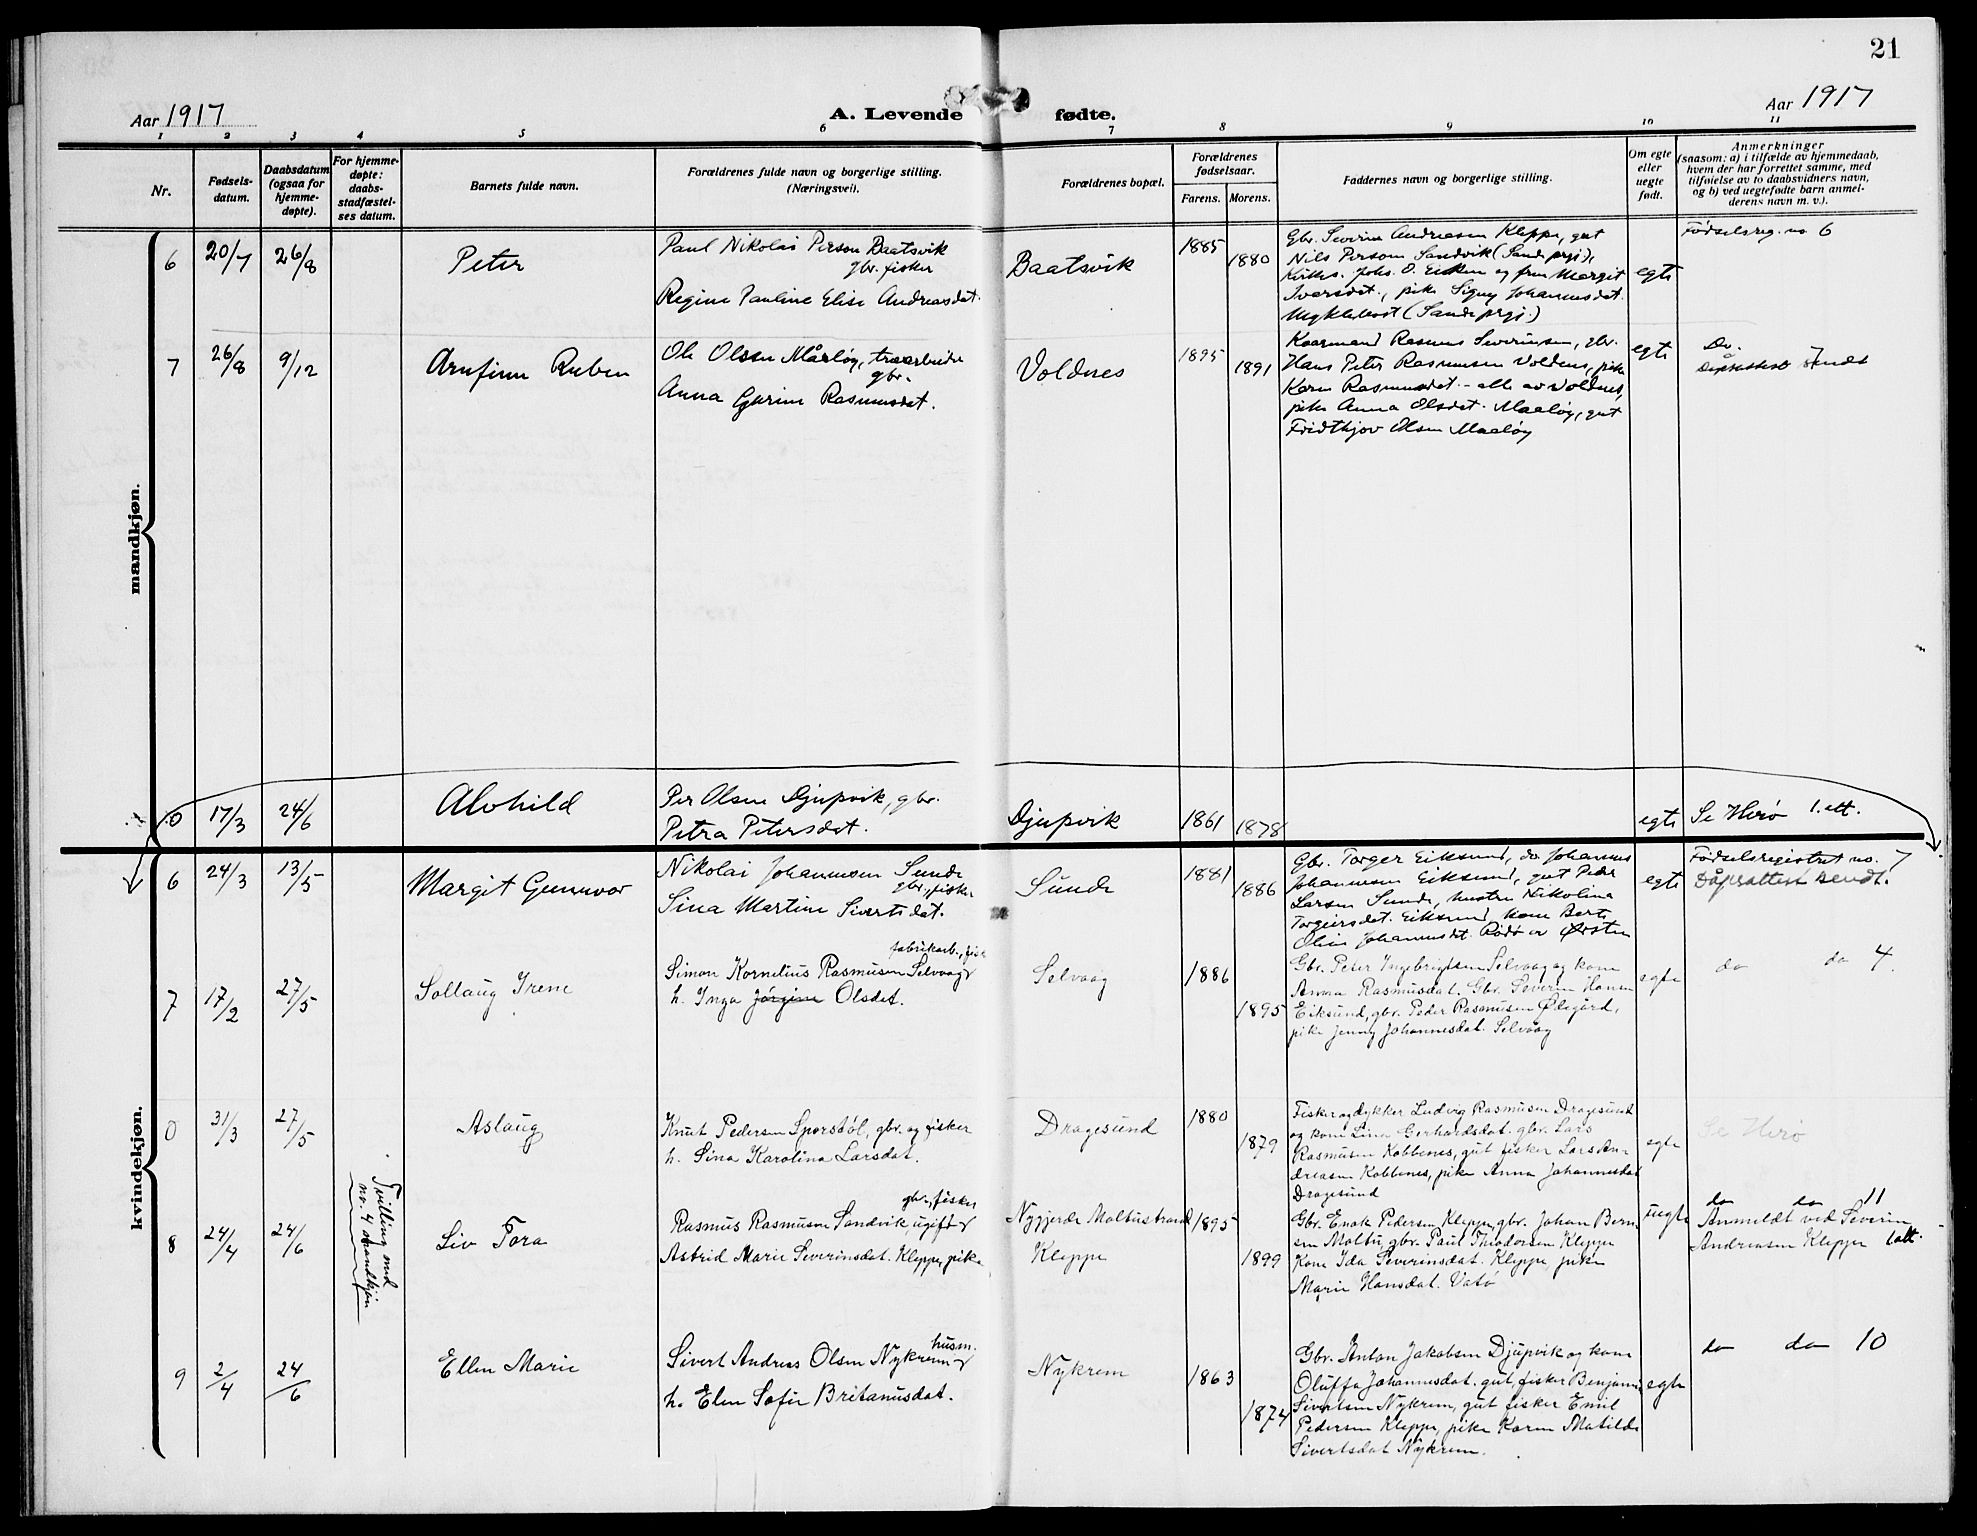 21
Aar 1917
A. Levende fødte.
Aar 1917
1 2 3 4 5 6 7 8 9 10 11
Nr.
Fødsels-
datum.
Daabsdatum
(ogsaa for
hjemme-
døpte).
For hjemme-
døpte:
daabs-
stadfæstel-
ses datum.
Barnets fulde navn.
Forældrenes fulde navn og borgerlige stilling.
(Næringsvei).
Forældrenes bopæl.
Forældrenes
fødselsaar.
Farens. Morens.
Faddernes navn og borgerlige stilling.
Om egte
eller
uegte
født.
Anmerkninger
(saasom: a) i tilfælde av hjemmedaab,
hvem der har forrettet samme, med
tilføielse av to daabsvidners navn,
og b) ved uegtefødte barn anmel-
derens navn m. v.).
mandkjøn.
6
20/7
26/8
Peter
Paul Nikolai Person Baatsvik
gbr. fisker
Regine Pauline Elise Andreasdat.
Baatsvik
1885
1880
Gbr. Severin Andreasen Kleppe, gut
Nils Person Sandvik (Sande prgj),
Kirkes. Johs. O. Eiken og fru Margit
Iversdat., pike Signy Johannesdat.
Myklebost (Sande prgj.)
egte
Fødselsreg. no 6
7
26/8
9/12
Arnfinn Ruben
Ole Olsen Måløy, træarbeider
gbr.
Anna Gurine Rasmusdat.
Voldnes
1895
1891
Kaarmand Rasmus Severinsen, gbr.
Hans Peter Rasmussen Voldnes, pike
Karen Rasmusdat - alle av Voldnes,
pike Anna Olsdat. Maaløy, gut
Fridthjov Olsen Maaløy
egte
Do. 7
Dåpsattest sendt
0
17/3
24/6
Alvhild
Per Olsen Djupvik, gbr.
Petra Petersdat.
Djupvik
1861
1878
egte
Se Herø 1. att.
kvindekjøn.
6
24/3
13/5
Margit Gunnvor
Nikolai Johannesen Sunde
gbr., fisker
Sina Martine Sivertsdat.
Sunde
1881
1886
Gbr. Torger Eiksund, do Johannes
Johannesen Eiksund, gut Peder
Larsen Sunde, hustru Nikolina
Torgeirsdat. Eiksund, kone Berte
Oline Johannesdat. Rødø av Ørsten
egte
Fødselsregistret no. 7
Dåpsattest sendt.
7
17/2
27/5
Sollaug Irene
fabrikarb., fisk
Simon Kornelius Rasmusen Selvaag
h. Inga Jørgine Olsdat.
Selvaag
1886
1895
Gbr. Peter Ingebrigtsen Selvaag og kone
Anna Rasmusdat. Gbr. Severin Hansen
Eiksund, gbr. Peder Rasmusen Ødegård,
pike Jenny Johannesdat. Selvaag
egte
do do 4.
0
31/3
27/5
Aslaug
Knut Pedersen Sporstøl, gbr. og fisker
h. Sina Karolina Larsdat.
Dragesund
1880
1879
Fisker og dykker Ludvig Rasmusen Dragesund
og kone Lina Gerhardsdat. gbr. Lars
Rasmusen Kobbenes, gut fisker Lars An-
dreasen Kobbenes, pike Anna Johannesdat
Dragesund
egte
Se Herø
8
24/4
24/6
Tvilling med
no. 4 mandkjøn
Liv Tora
gbr., fisker
Rasmus Rasmusen Sandvik, ugift
Astrid Marie Severinsdat. Kleppe, pike
Nygjerde Moltustrand
Kleppe
1895
1899
Gbr. Enok Pedersen Kleppe, gbr. Johan Bern
sen Moltu, gbr. Paul Theodorsen Kleppe
Kone Ida Severinsdat. Kleppe, pike
Marie Hansdat. Vatø
uegte
do do 11
Anmeldt ved Severin
Andreasen Kleppe 1 att.
9
2/4
24/6
Ellen Marie
husm.
Sivert Andreas Olsen Nykrem
h. Elen Sofie Britanusdat.
Nykrem
1863
1874
Gbr. Anton Jakobsen Djupvik og kone
Oluffa Johannesdat. gut, fisker Benjamin
Sivertsen Nykrem, gut fisker Emil
Pedersen Kleppe, pike Karen Matilde
Sivertsdat Nykrem.
egte
do do 10